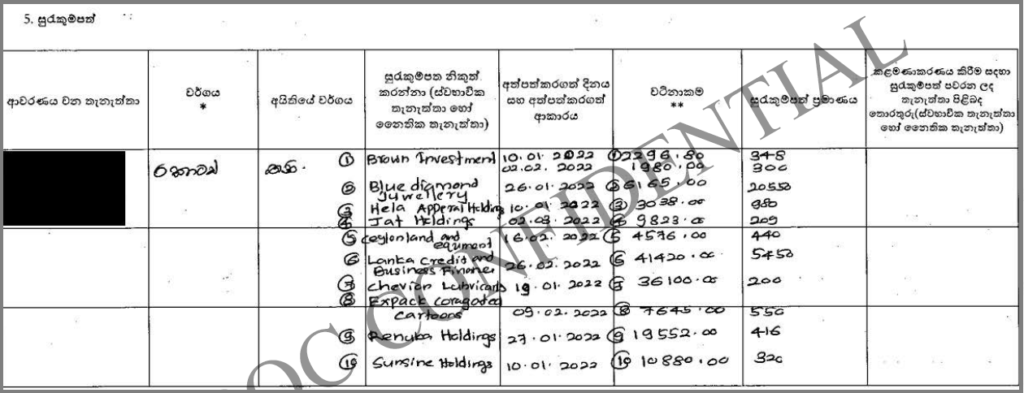 5. සුරැකුම්පත්
ආවරණය වන තැනැත්තා
වර්ගය
*
අයිතියේ වර්ගය
සුරැකුම්පත නිකුත්
කරන්නා (ස්වභාවික
තැනැත්තා හෝ
නෛතික තැනැත්තා)
අත්පත්කරගත් දිනය
සහ අත්පත්කරගත්
ආකාරය
වටිනාකම
**
සුරැකුම්පත් ප්‍රමාණය
කළමණාකරණය කිරීම සඳහා
සුරැකුම්පත් පවරන ලද
තැනැත්තා පිළිබඳ
තොරතුරු(ස්වභාවික තැනැත්තා
හෝ නෛතික තැනැත්තා)
කොටස්
① Brown Investment 10.01.2022 ① 2296.80 348
02.02.2022 1980.00 300
② Blue diamond 26.01.2022 ② 6165.00 20550
Juwellery
③ Hela Apperal Holding 10.01.2022 ③ 3038.00 980
④ Jat Holdings 02.03.2022 ④ 9823.00 209
⑤ Ceylonland and 16.02.2022 ⑤ 4576.00 440
equment
⑥ Lanka Credit and 26.02.2022 ⑥ 41420.00 5450
Business Finance
⑦ Chevion Lubricants 19.01.2022 ⑦ 36100.00 200
⑧ Expack coragated
cartoons 09.02.2022 ⑧ 7645.00 550
⑨ Renuka Holdings 27.01.2022 ⑨ 19552.00 416
⑩ Sunsine Holdings 10.01.2022 ⑩ 10880.00 320
OC CONFIDENTIAL